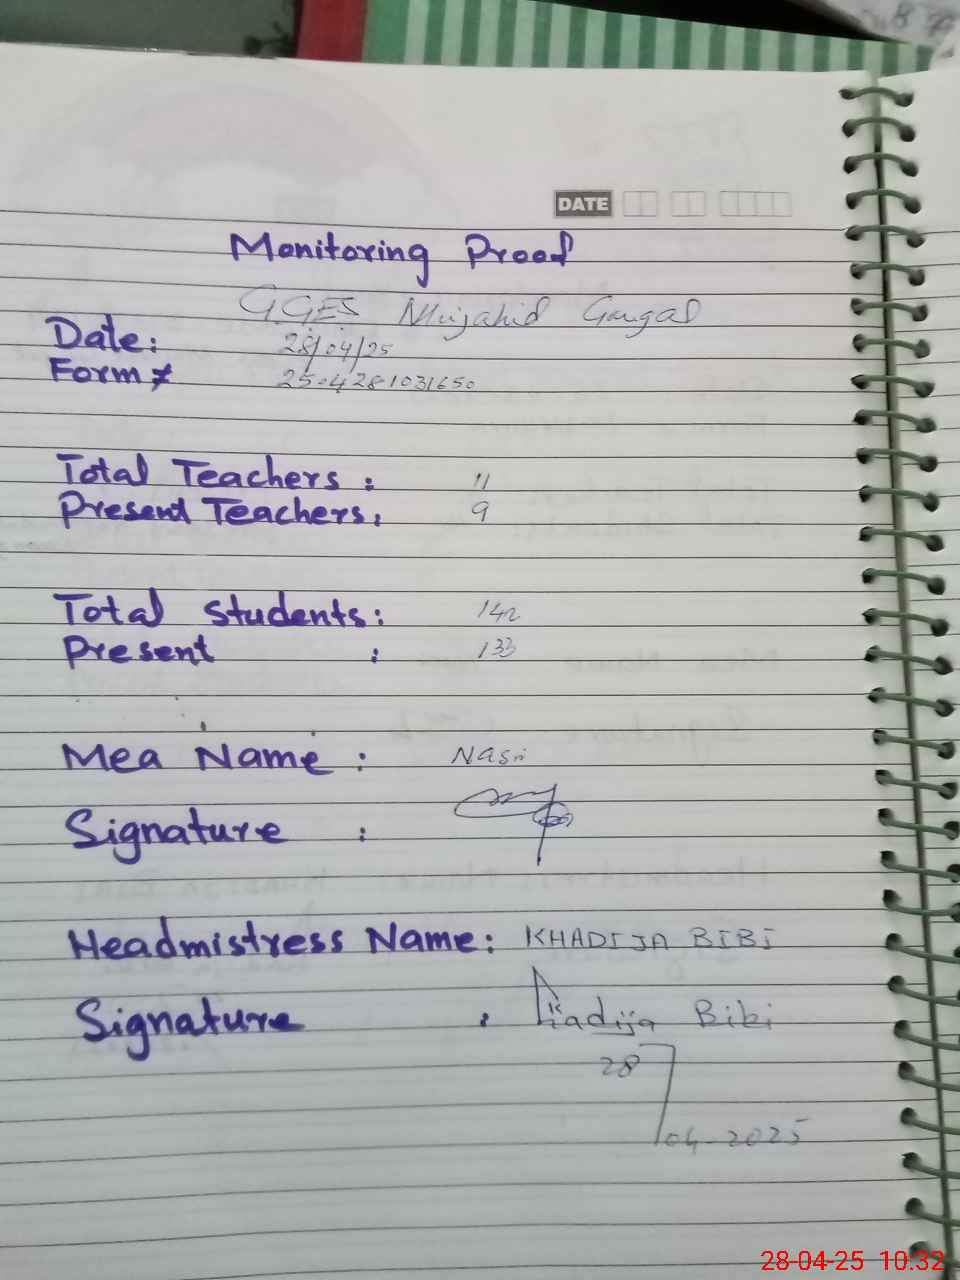 DATE
Monitoring Proof
GGES Mujahid Gangal
Date: 28/04/25
Form # 2504281031650
Total Teachers: 11
Present Teachers: 9
Total Students: 142
Present : 133
Mea Name :
Signature :
Headmistress Name: KHADIJA BIBI
Signature : Khadija Bibi
28
04-2025
28-04-25 10:32